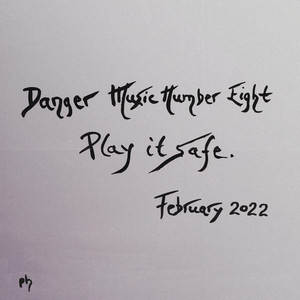 Danger Music Number Eight
Play it safe.
February 2022
ph